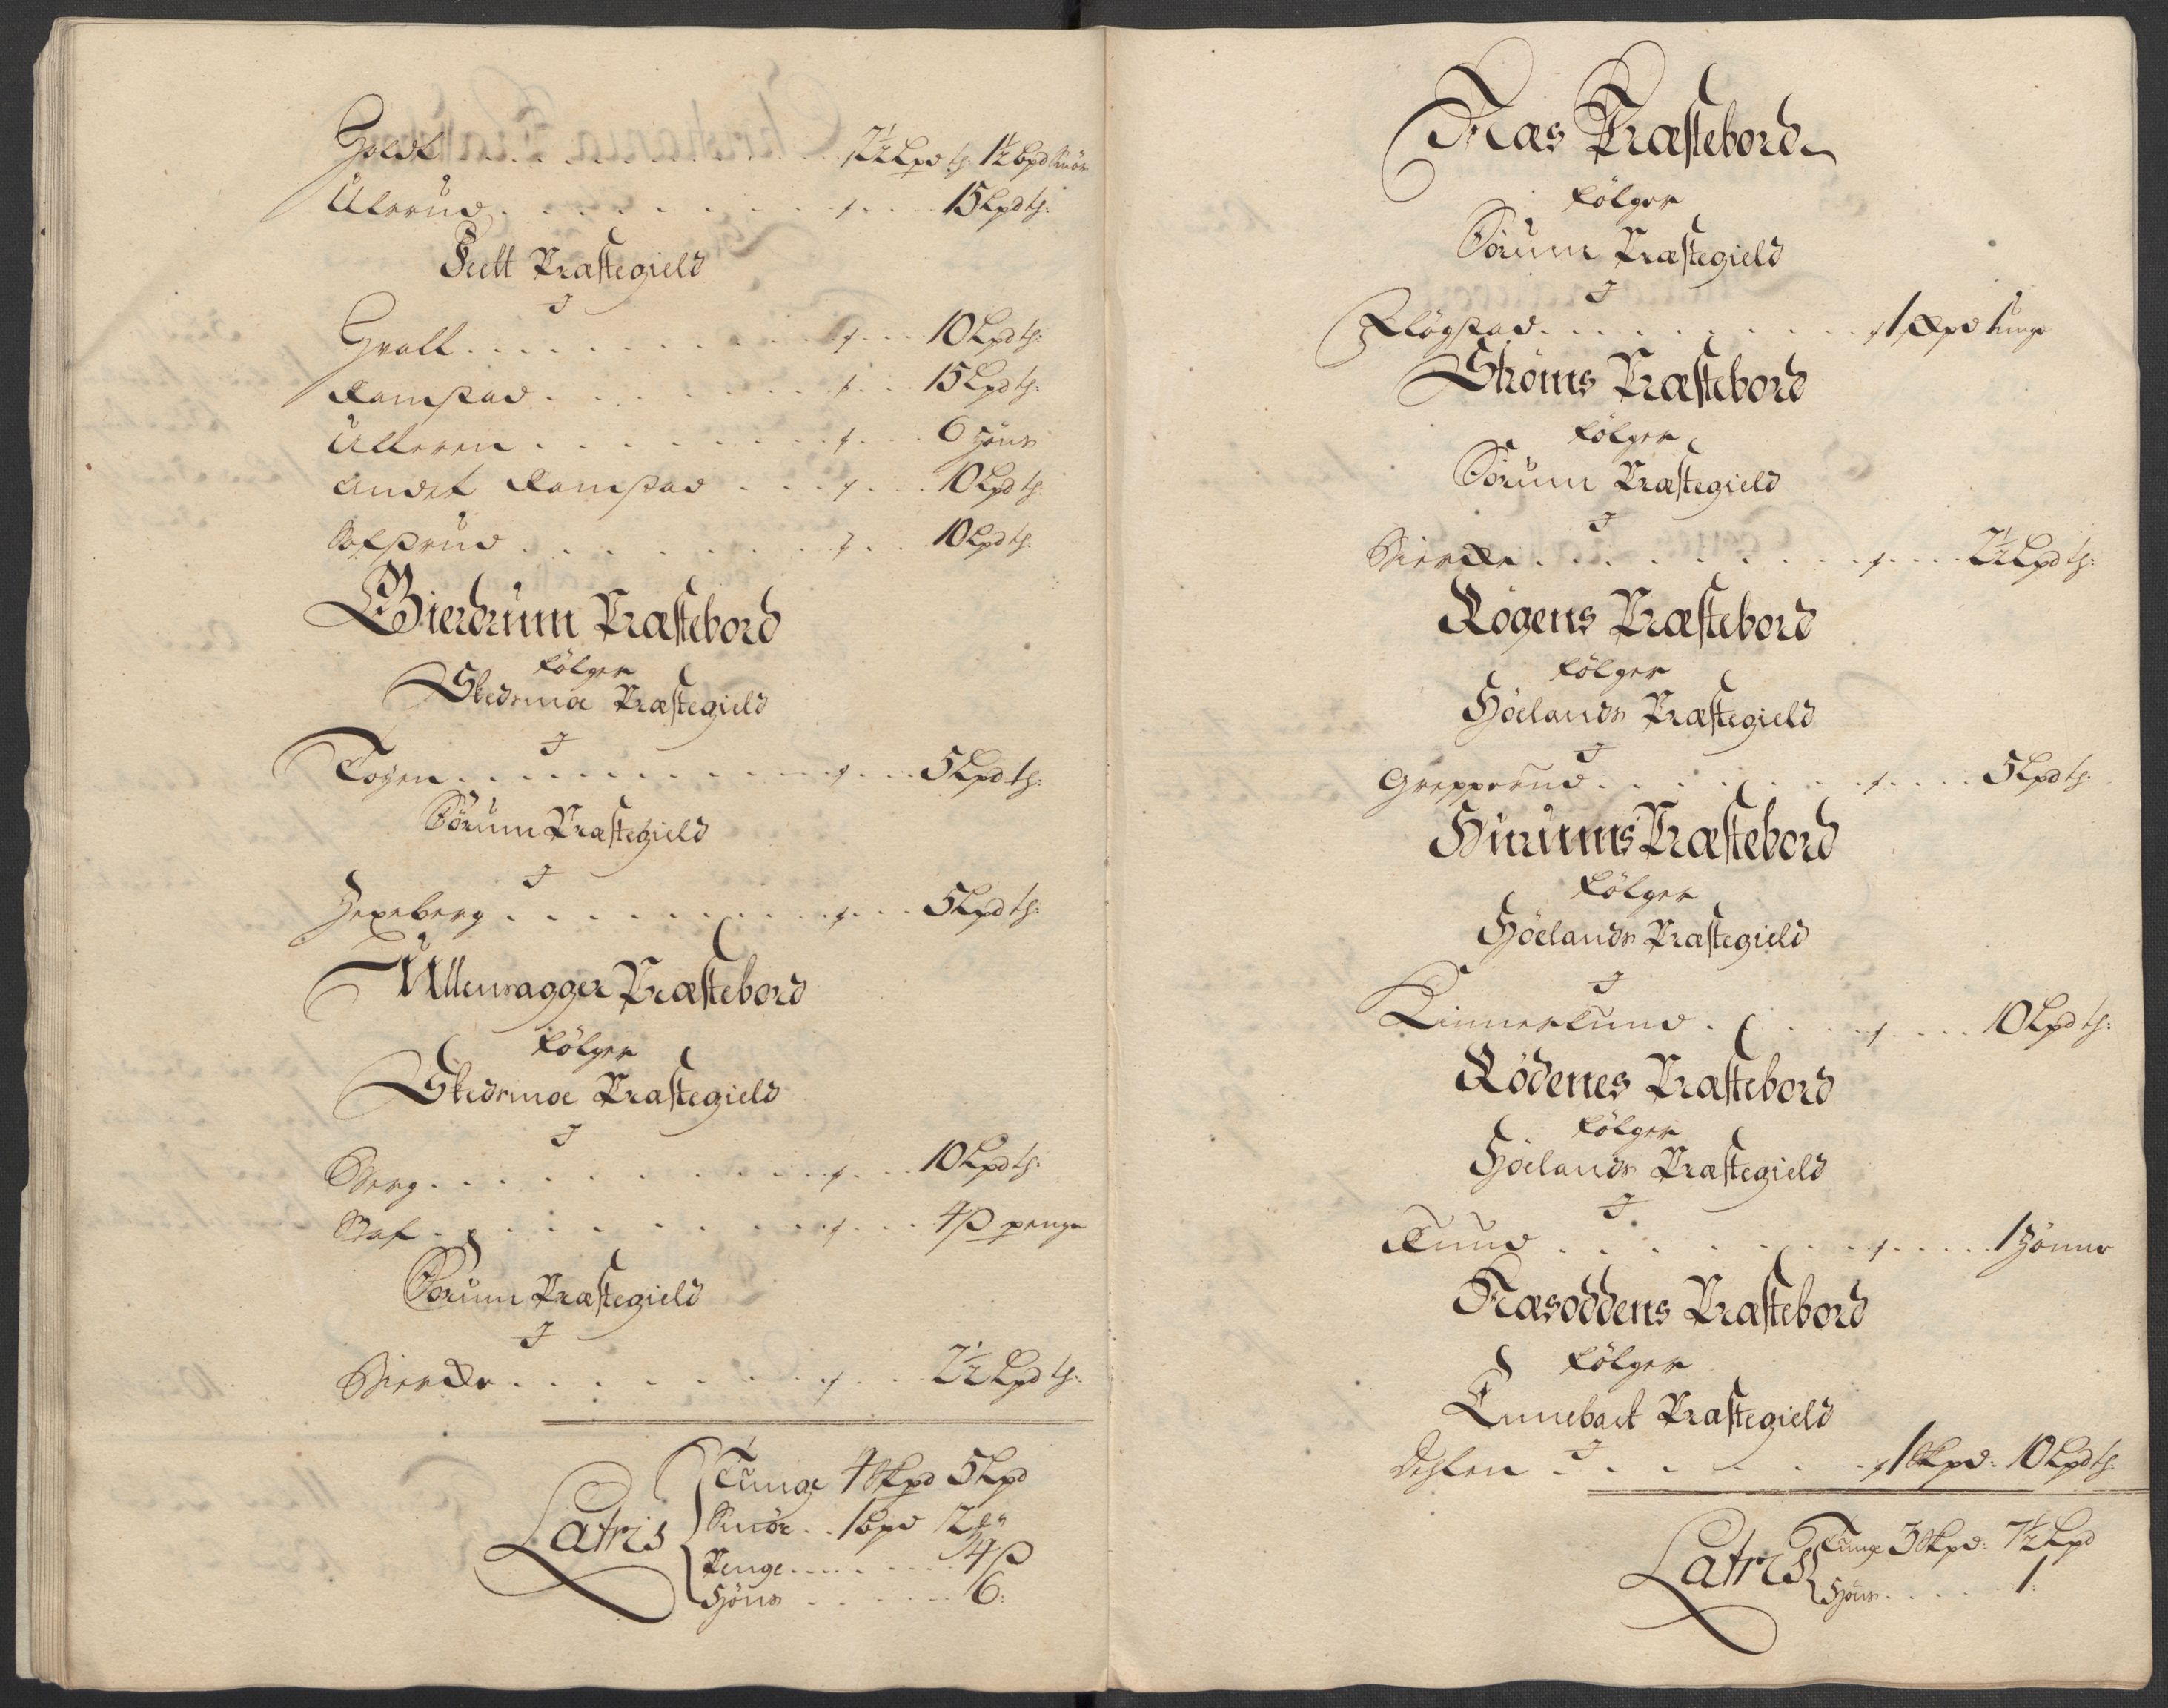 Holdt . . . . . 7½ Lpd tg: 1½ bpd Smör
Ulerud . . . . . 15 Lpd tg:
Feett Præstegield
I
Hvall . . . . . 10 Lpd tg:
Ramstad . . . . . 15 Lpd tg:
Ulleren . . . . . 6 Höns
Andet Ramstad . . . . . 10 Lpd tg:
Bolstrud . . . . . 10 Lpd tg:
Gierdrum Præstebord
følger
Skedsmoe Præstegield
I
Toyen . . . . . 5 Lpd tg:
Sörum Præstegield
I
Hexeberg . . . . . 5 Lpd tg:
Ullensagger Præstebord
følger
Skedsmoe Præstegield
I
Berg . . . . . 10 Lpd tg:
Staf . . . . . 4 ß penge
Sorum Præstegield
I
Biercke . . . . . 2½ Lpd tg:
Latris
Tunge 4 Skpd 5 Lpd
Smör . . 1 bpd 12 ℔
Penge . . . . . 4 ß
Höns . . . . . 6:
Næs Præstebord
følger
Sörum Præstegield
I
Fløgstad . . . . . 1 Skpd tunge
Ströms Præstebord
følger
Sörum Præstegield
I
Biercke . . . . . 2½ Lpd tg:
Rögens Præstebord
følger
Höelands Præstegield
I
Grepperud . . . . . 5 Lpd tg:
Hurums Præstebord
følger
Höelands Præstegield
I
Kinnerlund . . . . . 10 Lpd tg:
Rödenes Præstebord
følger
Höelands Præstegield
I
Lund . . . . . 1 Hönne
Næsoddens Præstebord
følger
Ennebact Præstegield
I
. . . . . 1 Skpd: 10 Lpd tg:
Latris
Tunge 3 Skpd: 7½ Lpd
Höns . . . . . 1: